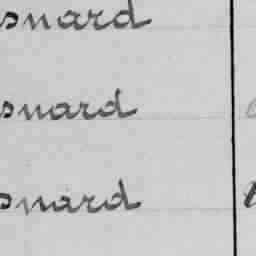 snard
snard
snard